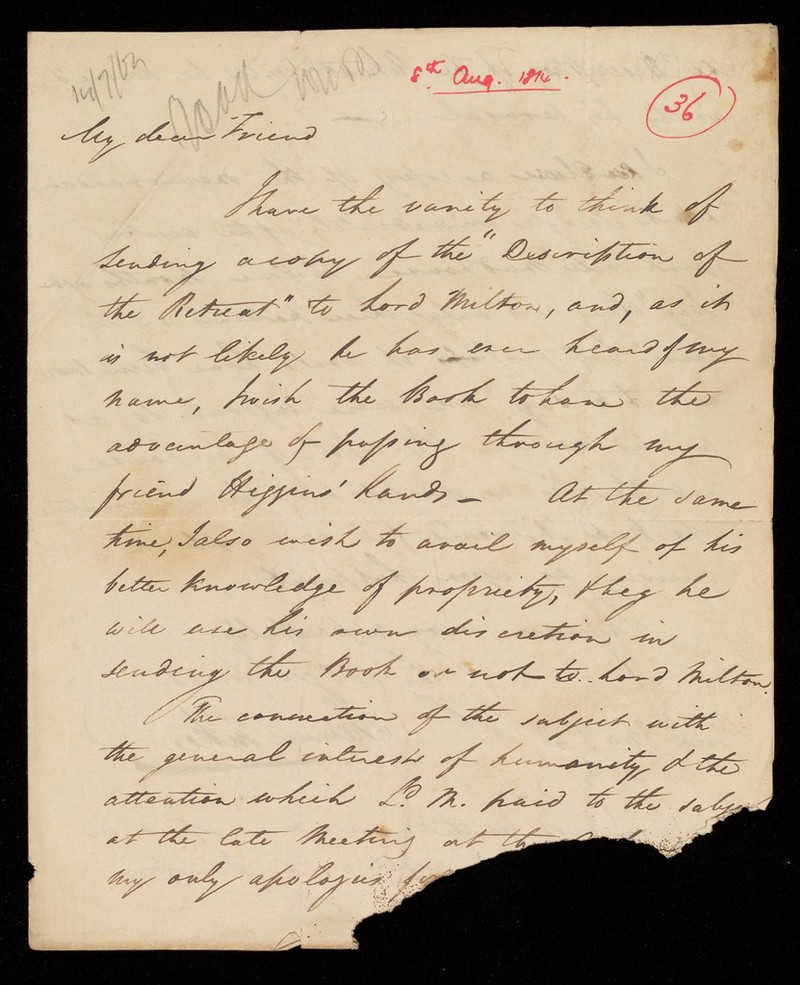 8th Aug. 1814.
36
14/7/62
My dear Friend
I have the vanity to think of
sending a copy of the "Description of
the Retreat" to Lord Milton, and, as it
is not likely he has ever heard of my
name, I wish the Book to have the
advantage of passing through my
friend Higgins' hands — At the same
time, I also wish to avail myself of his
better knowledge of propriety, & beg he
will use his own discretion in
sending the Book or not to Lord Milton.
The connection of the subject with
the general interests of humanity & the
attention which Ld. M. paid to the subject
at the late Meeting at the
my only apologies for